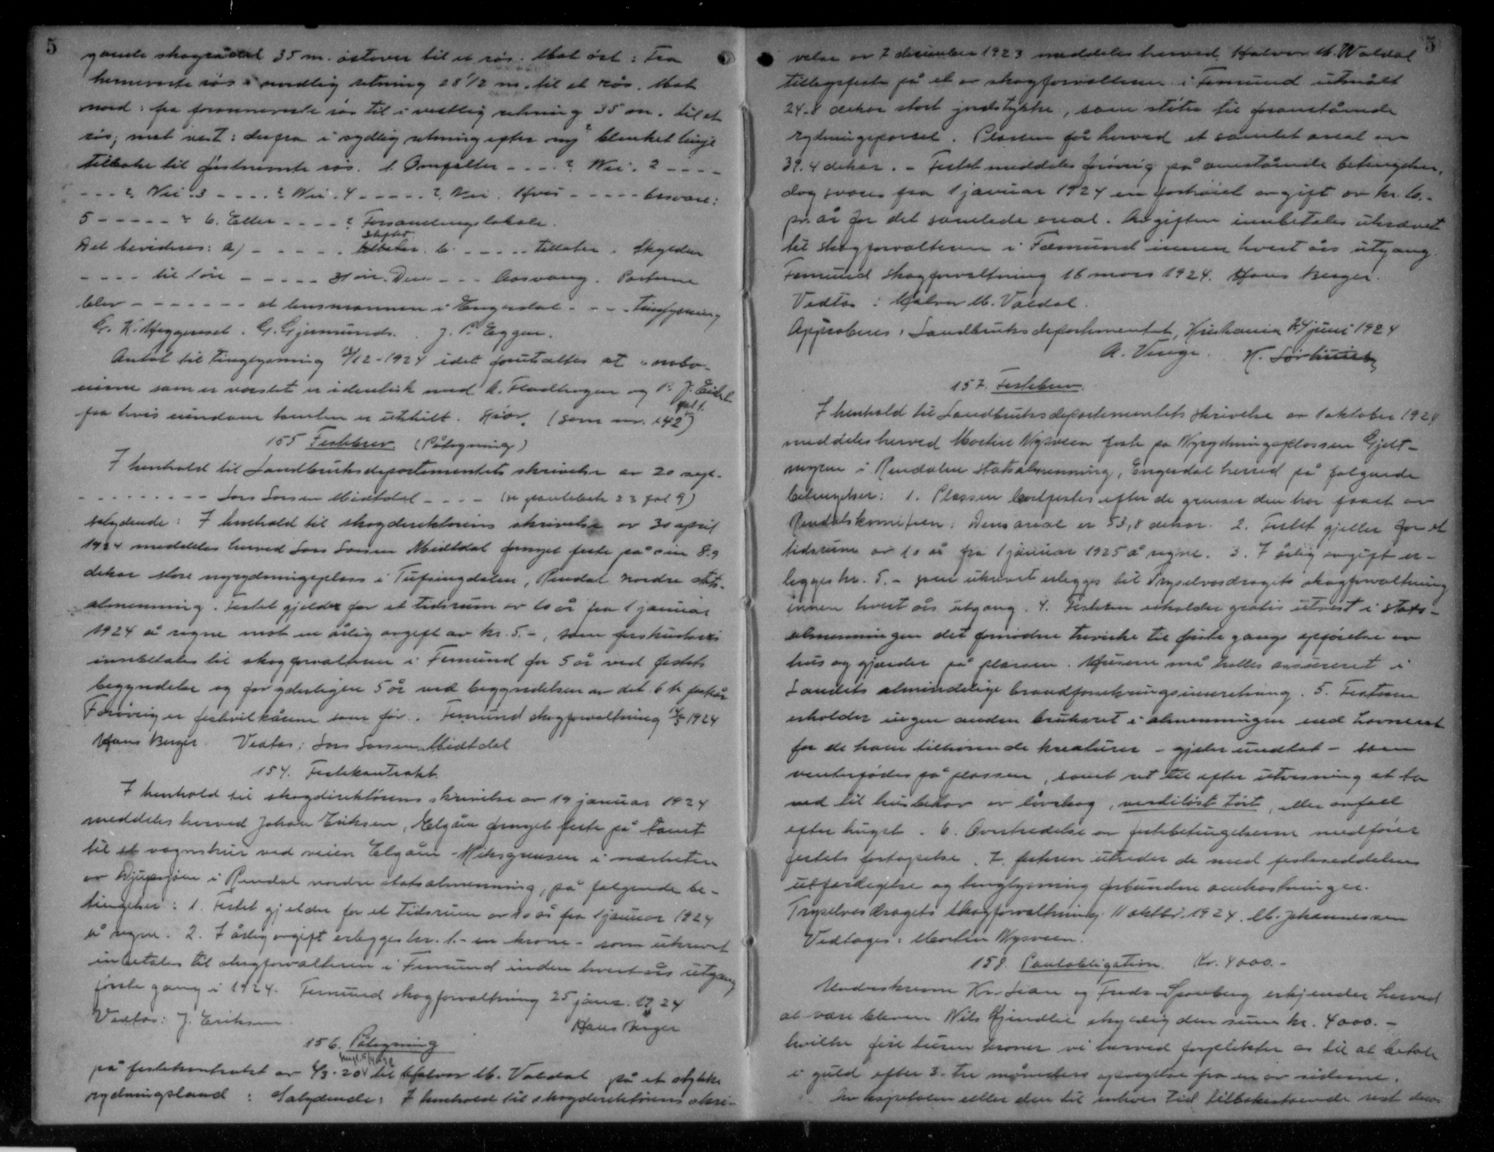 5
gaende skograaeal 35 m. östover til et rös. Mot öst: Fra
hernevnte rös i nordlig retning 28 1/2 m. til et rös. Mot
nord: fra forannevnte rös til i vestlig retning 35 m. til et
rös; mot vest: derfra i sydlig retning efter ny blinket linje
tilbake til förstnevnte rös. 1. Omfatter - - - ? Nei. 2 - - - -
- - - ? Nei. 3 - - - - ? Nei. 4 - - - - - ? Nei. Hvis - - - - besvare:
5 - - - - - ? 6. Eller - - - - ? Forsamlingslokale.
Det bevidnes: a) - - - - - b. - - - - tillater. Skylden
- - - - til 1 öre - - - - - 31 öre. Den - - - Aasvang. Partene
blev - - - - - - - at lensmannen i Engerdal - - - - tinglysning
G. K. Heggeraset. G. Gjermunds. J. P. Eggen.
Antat til tinglysning 3/12-1924 idet forutsettes at nabo-
eierne som er varslet er identisk med k. Fladhagen og P. J.
fra hvis eiendom tomten er utskilt. Hiör. (som nr. 142)
155 Festebrev (Påtegning)
I henhold til Landbruksdepartementets skrivelse av 20 sept-
- - - - - - - - - Lars Larsen Midtdal - - - - (se pantebok 23 fol 9)
salydende: I henhold til skogdirektörens skrivelse av 30 april
1924 meddeles herved Lars Larsen Midtdal fornyet feste på sin 8.9
dekar store nyrydningsplass i Tufsingdalen, Rendal nordre stats-
almenning. Festet gjelder for et tidsrum av 10 år fra 1 januar
1924 å regne mot en årlig avgift av kr. 5.-, som forskudsvis
innbetales til skogforvalteren i Femund for 5 år ved festets
begyndelse og for yderligere 5 år ved begyndelsen av det 6te festeår
Forövrig er festevilkårene som för. Femund skogforvaltning 1924
Hans Berger. Vedtas: Lars Larsen Midtdal
154. Festekontrakt
I henhold til skogdirektörens skrivelse av 19 januar 1924
meddeles herved Johan Eriksen, Elgåen fornyet feste på tomt
til et vognskur ved veien Elgåen - Riksgrensen i nærheten
av Djupsjöen i Rendal nordre statsalmenning, på folgende be-
tingelser: 1. Festet gjelder for et tidsrum av 10 år fra 1 januar 1924
å regne. 2. I årlig avgift erlegges kr. 1.- en krone - som ukrevet
inbetales til skogforvalteren i Femund inden hvert års utgang
förste gang i 1924. Femund skogforvaltning 25 januar 1924
Vedtas: J. Eriksen. Hans Berger
156. Påtegning
på festekontrakt av 4/3-20 til Halvor M. Valdal på et stykke
rydningsland: Salydende: I henhold til skogdirektörens skri-
5
velse av 7 december 1923 meddeles herved Halvor M. Valdal
tilleggsfeste på et av skogforvalteren i Femund utmålt
24.8 dekar stort jordstykke, som stöter til foranstående
rydningsparsel. Plassen får herved et samlet areal av
39.4 dekar. - Festet meddeles forövrig på ovenstående betingelser,
dog svares fra 1 januar 1924 en forhöiet avgift av kr. 10.-
pr. år for det samlede areal. Avgiften innbetales ukrævet
til skogforvalteren i Femund innen hvert års utgang
Femund skogforvaltning 16 mars 1924. Hans Berger.
Vedtas: Halvor M. Valdal.
Approberes: Landbruksdepartementet, Kristiania 24 juni 1924
157. Festebrev.
I henhold til Landbruksdepartementets skrivelse av 1 oktober 1924
meddeles herved Martin Nysveen feste på Nyrydningsplassen Gjelt-
myren i Rendalen statsalmenning, Engerdal herred på folgende
betingelser: 1. Plassen bortfestes efter de grenser den har faaet av
Rendalskomiteen. Dens areal er 53,8 dekar. 2. Festet gjelder for et
tidsrum av 10 år fra 1 januar 1925 å regne. 3. I årlig avgift er-
legges kr. 5.- som ukrevet erlegges til Trysilvasdragets skogforvaltning
innen hvert års utgang. 4. Festeren erholder gratis utvist i stats-
almenningen det fornödne trevirke til förste gangs opförelse av
hus og gjærder på plassen. Husene må holdes assureret i
Landets almindelige brandforsikringsinnretning. 5. Festeren
erholder ingen anden bruksret i almenningen end havneret
for de ham tilhörende kreaturer - gjeter undtat - som
vinterfödes på plassen, samt ret til efter utvisning at ta
ved til husbehov av lövskog, verdilöst tört, eller avfall
efter hugst. 6. Overtredelse av festebetingelserne medförer
festets fortapelse. 7. festeren utreder de med festeseddelens
utfærdigelse og tinglysning forbundne omkostninger.
Trysilvasdragets skogforvaltning 11 oktbr. 1924. M. Johannessen
Vedtages: Martin Nysveen.
158. Pantobligation. Kr. 4000.-
Underskrevne Kr. Lian og Fredr. erkjender herved
at være bleven Nils skyldig den sum kr. 4000.-
hvilke fire tusen kroner vi herved forplikter os til at betale
i guld efter 3-tre måneders opsigelse fra en av siderne.
Av kapitalen eller den til enhver tid tilbakestaaende rest derav